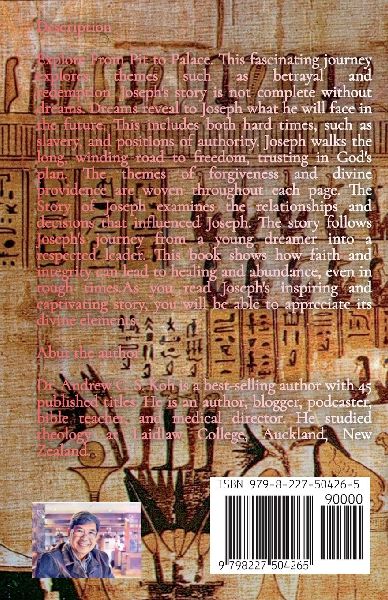 Description
Explore From Pit to Palace. This fascinating journey
explores themes such as betrayal and
redemption. Joseph's story is not complete without
dreams. Dreams reveal to Joseph what he will face in
the future. This includes both hard times, such as
slavery, and positions of authority. Joseph walks the
long, winding road to freedom, trusting in God's
plan. The themes of forgiveness and divine
providence are woven throughout each page. The
Story of Joseph examines the relationships and
decisions that influenced Joseph. The story follows
Joseph's journey from a young dreamer into a
respected leader. This book shows how faith and
integrity can lead to healing and abundance, even in
rough times.As you read Joseph's inspiring and
captivating story, you will be able to appreciate its
divine elements.
Abut the author
Dr. Andrew C. S. Koh is a best-selling author with 45
published titles. He is an author, blogger, podcaster,
bible teacher, and medical director. He studied
theology at Laidlaw College, Auckland, New
Zealand.
ISBN 979-8-227-50426-5
90000
9 798227 504265